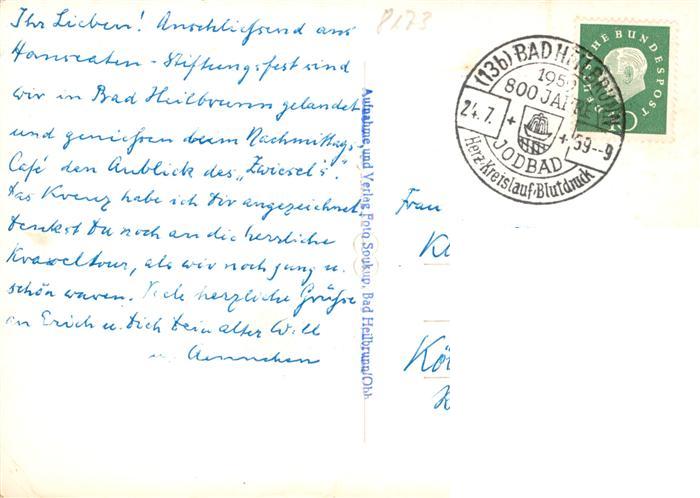 Ihr Lieben! Anschließend ans
Hanseaten-Stiftungsfest sind
wir in Bad Heilbrunn gelandet
und genießen beim Nachmittag-
Café den Anblick des „Zwiesel's".
Das Kreuz habe ich Dir angezeichnet,
denkst Du noch an die herzliche
Kraxeltour, als wir noch jung u.
schön waren. Viele herzliche Grüße
an Erich u. Dich Dein alter Will
u. Aennchen
8173
Aufnahme und Verlag Foto Soukup, Bad Heilbrunn/Obb
(13b) BAD HEILBRUNN
1959
800 JAHRE
24.7. 59--9
JODBAD
Herz·Kreislauf·Blutdruck
DEUTSCHE BUNDESPOST
Frau